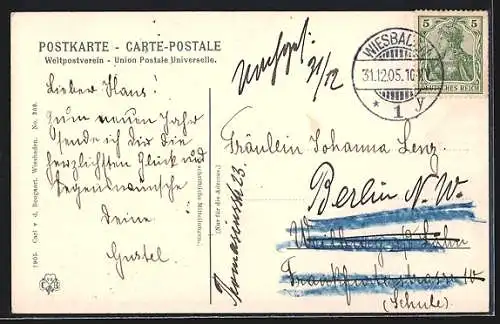 POSTKARTE - CARTE-POSTALE
Weltpostverein - Union Postale Universelle.
Lieber Hans!
Zum neuen Jahr
sende ich dir die
herzlichsten Glück und
Segenswünsche
Deine
Gustel.
1905. Carl v. d. Boogaart. Wiesbaden. No. 388.
(Nur für die Adresse.)
31/12
WIESBADEN
31.12.05.
* 1 y
5 5
DEUTSCHES REICH
Fräulein Johanna Lenz.
Berlin N. W.
Frankfurterstrasse 10
(Schule)
23.